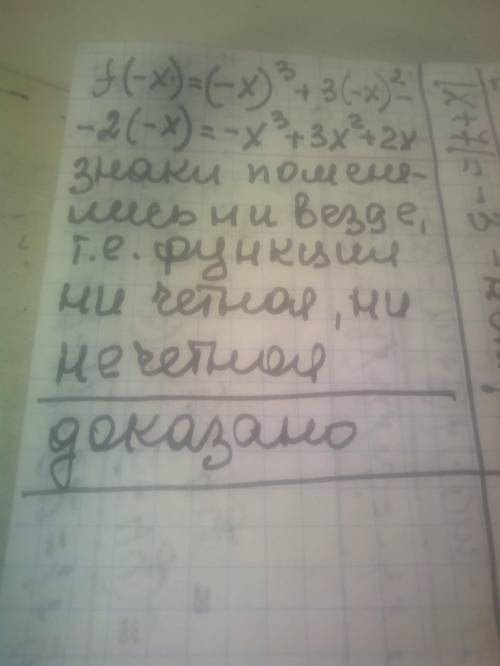 f(-x)=(-x)³+3(-x)²-
-2(-x)=-x³+3x²+2x
знаки помене-
лись ни везде,
т.е. функция
ни четная, ни
нечетная
доказано